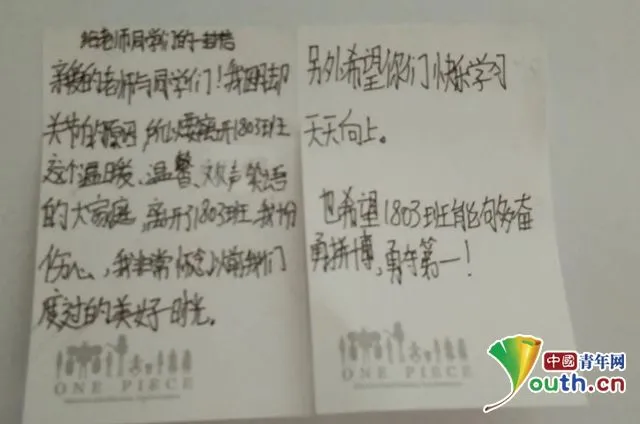 给老师同学们的一封信
亲爱的老师与同学们！我因却
关节的原因，所以要离开1803班
这个温暖、温馨、欢声笑语
的大家庭，离开了1803班，我份
伤心，我非常怀念以前我们
度过的美好时光。
ONE PIECE
另外希望你们快乐学习
天天向上。
也希望1803班能向多奋
勇拼博，勇夺第一！
ONE PIECE
中國青年网
Youth.cn